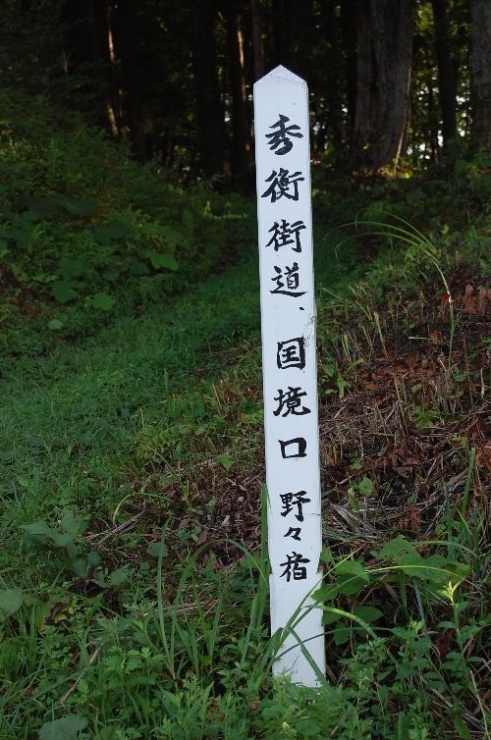 秀衡街道、国境口 野々宿